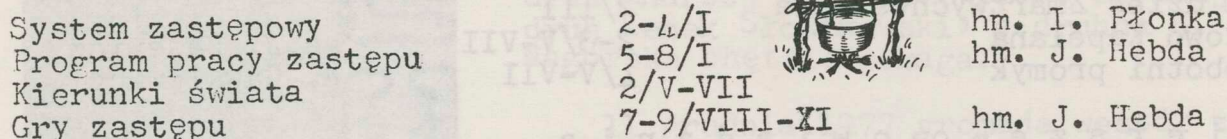 System zastępowy 2-4/I hm. I. Płonka
Program pracy zastępu 5-8/I hm. J. Hebda
Kierunki świata 2/V-VII
Gry zastępu 7-9/VIII-XI hm. J. Hebda